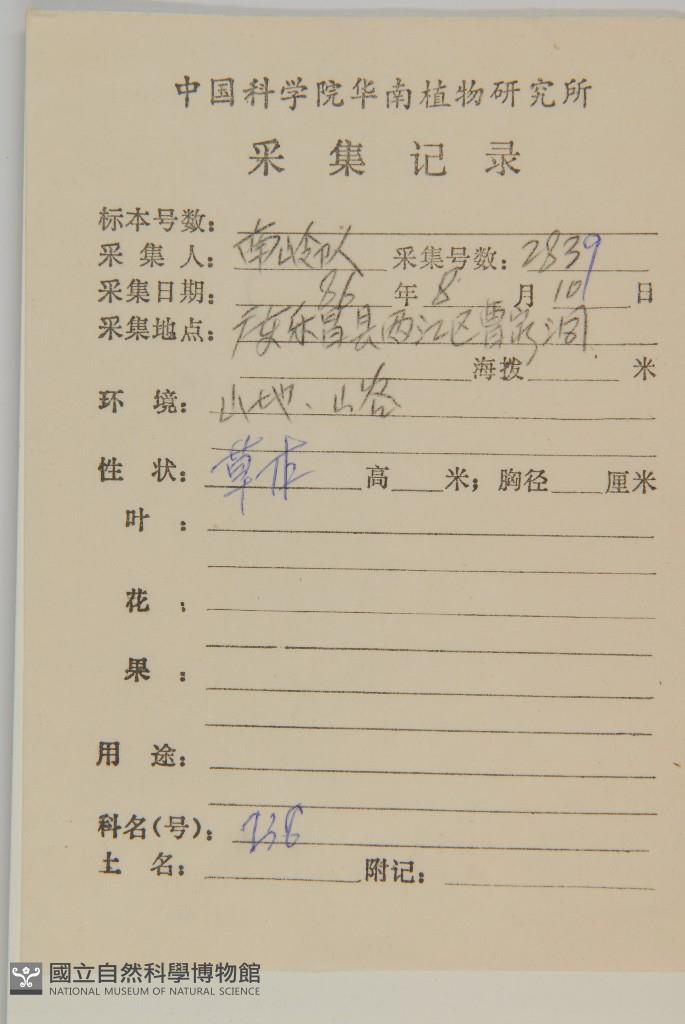 中国科学院华南植物研究所
采集记录
标本号数：
采集人：南岭队 采集号数：2839
采集日期：86年8月10日
采集地点：广东乐昌县两江区曹家洞
海拨 米
环境：山地、山谷
性状：草本 高 米；胸径 厘米
叶：
花：
果：
用途：
科名(号)：136
土名： 附记：
國立自然科學博物館
NATIONAL MUSEUM OF NATURAL SCIENCE